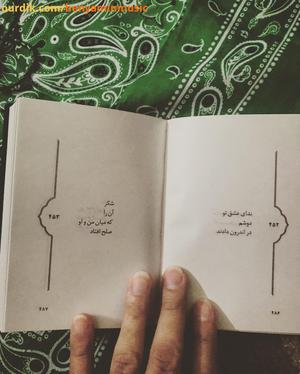 purdik.com/benyaminmusic
ندای عشق تو
دوشم
در اندرون دادند
۴۵۲
۲۸۶
شکر
آن را
که میان من و او
صلح افتاد
۴۵۳
۲۸۷